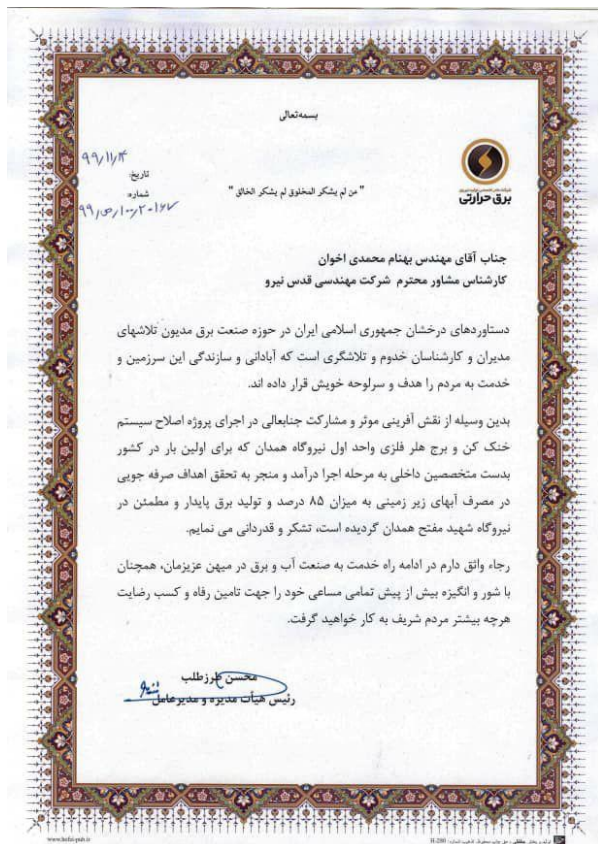 بسمه‌تعالی
تاریخ: ۹۹/۱۱/۴
شماره: ۹۹/ص/۱۰۰/۲۰۱۶۷
برق حرارتی
"من لم یشکر المخلوق لم یشکر الخالق"
جناب آقای مهندس بهنام محمدی اخوان
کارشناس مشاور محترم شرکت مهندسی قدس نیرو
دستاوردهای درخشان جمهوری اسلامی ایران در حوزه صنعت برق مدیون تلاشهای
مدیران و کارشناسان خدوم و تلاشگری است که آبادانی و سازندگی این سرزمین و
خدمت به مردم را هدف و سرلوحه خویش قرار داده اند.
بدین وسیله از نقش آفرینی موثر و مشارکت جنابعالی در اجرای پروژه اصلاح سیستم
خنک کن و برج هلر فلزی واحد اول نیروگاه همدان که برای اولین بار در کشور
بدست متخصصین داخلی به مرحله اجرا درآمد و منجر به تحقق اهداف صرفه جویی
در مصرف آبهای زیر زمینی به میزان ۸۵ درصد و تولید برق پایدار و مطمئن در
نیروگاه شهید مفتح همدان گردیده است، تشکر و قدردانی می نمایم.
رجاء واثق دارم در ادامه راه خدمت به صنعت آب و برق در میهن عزیزمان، همچنان
با شور و انگیزه بیش از پیش تمامی مساعی خود را جهت تامین رفاه و کسب رضایت
هرچه بیشتر مردم شریف به کار خواهید گرفت.
محسن طرزطلب
رئیس هیأت مدیره و مدیرعامل
H-280